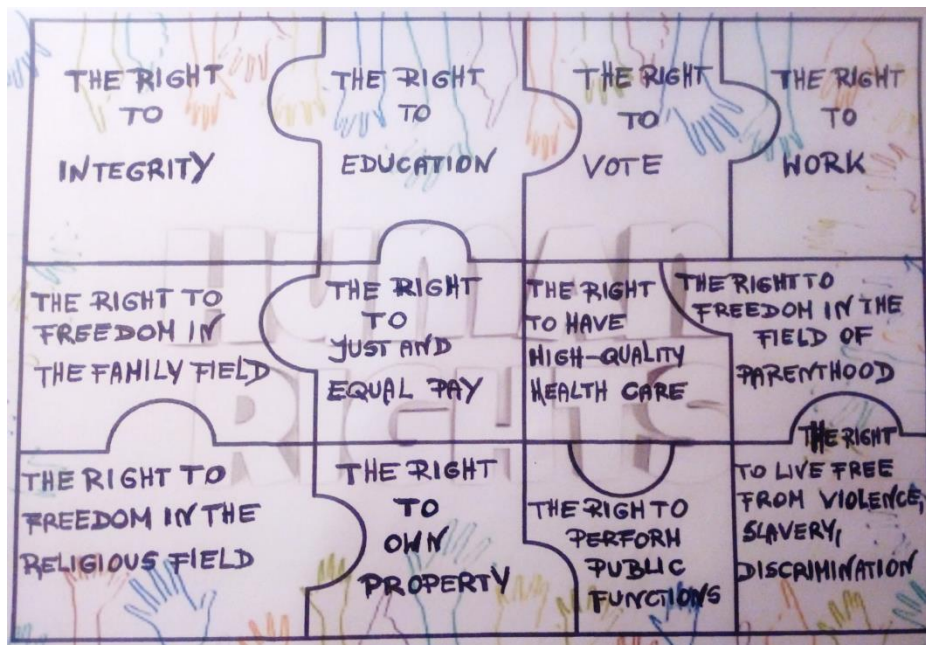 THE RIGHT
TO
INTEGRITY
THE RIGHT
TO
EDUCATION
THE RIGHT
TO
VOTE
THE RIGHT
TO
WORK
THE RIGHT TO
FREEDOM IN
THE FAMILY FIELD
THE RIGHT
TO
JUST AND
EQUAL PAY
THE RIGHT
TO HAVE
HIGH-QUALITY
HEALTH CARE
THE RIGHT TO
FREEDOM IN THE
FIELD OF
PARENTHOOD
THE RIGHT TO
FREEDOM IN THE
RELIGIOUS FIELD
THE RIGHT
TO
OWN
PROPERTY
THE RIGH TO
PERFORM
PUBLIC
FUNCTIONS
THE RIGHT
TO LIVE FREE
FROM VIOLENCE,
SLAVERY,
DISCRIMINATION
HUMAN
RIGHTS